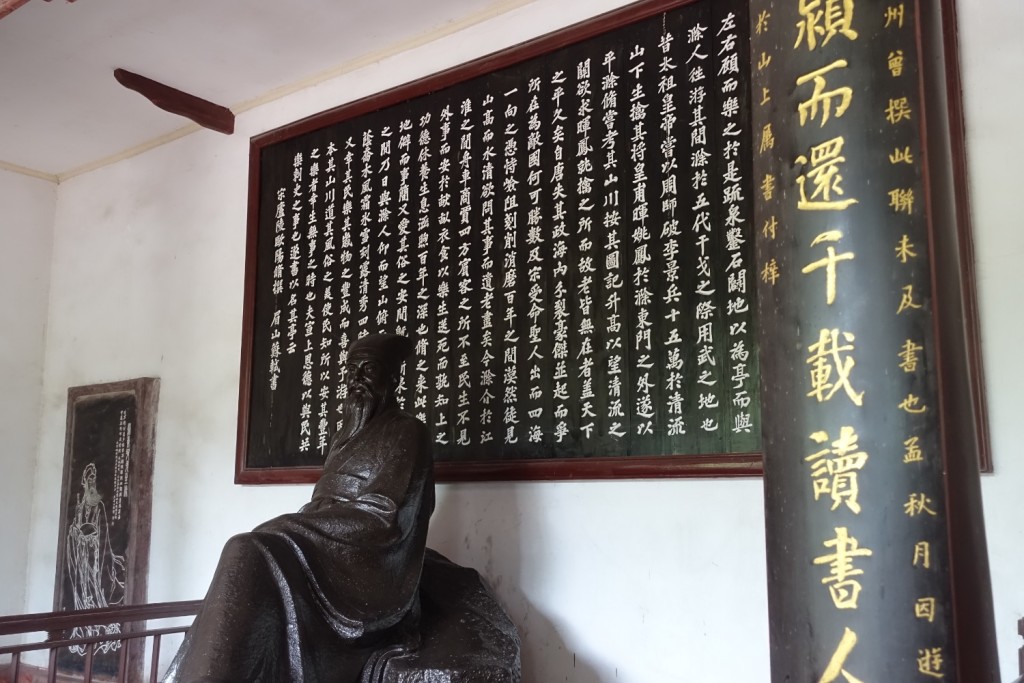 州曾撰此聯未及書也孟秋月因遊
潁而還千載讀書人
於山上属書付梓
左右顧而樂之於是疏泉鑿石闢地以為亭而與
滁人往游其間滁於五代干戈之際用武之地也
昔太祖皇帝嘗以周師破李景兵十五萬於清流
山下生擒其將皇甫暉姚鳳於滁東門之外遂以
平滁脩嘗考其山川按其圖記升高以望清流之
關欲求暉鳳就擒之所而故老皆無在者蓋天下
之平久矣自唐失其政海內分裂豪傑並起而爭
所在為敵國何可勝數及宋受命聖人出而四海
一向之憑恃險阻剗削消磨百年之間漠然徒見
山高而水清欲問其事而遺老盡矣今滁介於江
淮之間舟車商賈四方賓客之所不至民生不見
外事而安於畎畝衣食以樂生送死而孰知上之
功德休養生息涵煦百年之深也脩之來此樂
地僻而事簡又愛其俗之安閒
之間乃日與滁人仰而望山俯
蔭喬木風霜冰雪刻露清秀四
又幸其民樂其歲物之豐成而喜與予游也因
本其山川道其風俗之美使民知所以安其豐年
之樂者幸生無事之時也夫宣上恩德以與民共
樂刺史之事也遂書以名其亭云
宋廬陵歐陽脩撰 眉山蘇軾書